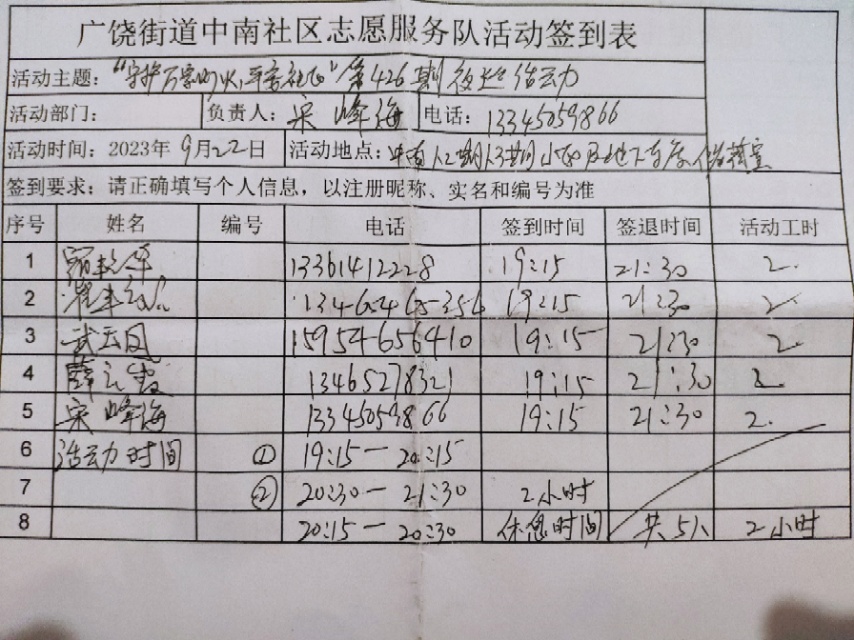 广饶街道中南社区志愿服务队活动签到表
活动主题：“守护万家灯火，平安社区”第426期夜巡活动
活动部门： 负责人：宋峰海 电话：13345059866
活动时间：2023年9月22日 活动地点：中南 期 小区及地下车库
签到要求：请正确填写个人信息，以注册昵称、实名和编号为准
序号 姓名 编号 电话 签到时间 签退时间 活动工时
1 13361412228 19:15 21:30 2.
2 13465465356 19:15 21:30 2
3 武云凤 15954656410 19:15 21:30 2
4 薛 霞 13465278321 19:15 21:30 2
5 宋峰海 13345059866 19:15 21:30 2.
6 活动时间 ① 19:15—20:15
7 ② 20:30—21:30 2小时
8 20:15—20:30 休息时间 共5人 2小时